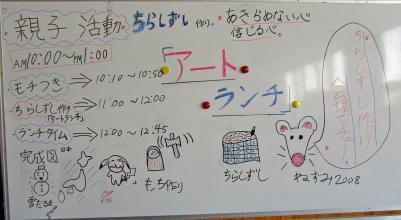 親子 活動 ちらしずし 作り。
あきらめない心
信じる心
AM10:00〜PM1:00
「アート
ランチ」
・モチつき → 10:10〜10:50
・ちらしずし作り → 11:00〜12:00
(アートランチ)
・ランチタイム → 12:00〜12:45
ちらしずし作り
完成図
雪だるま
もち作り
ちらしずし
ねずみ2008